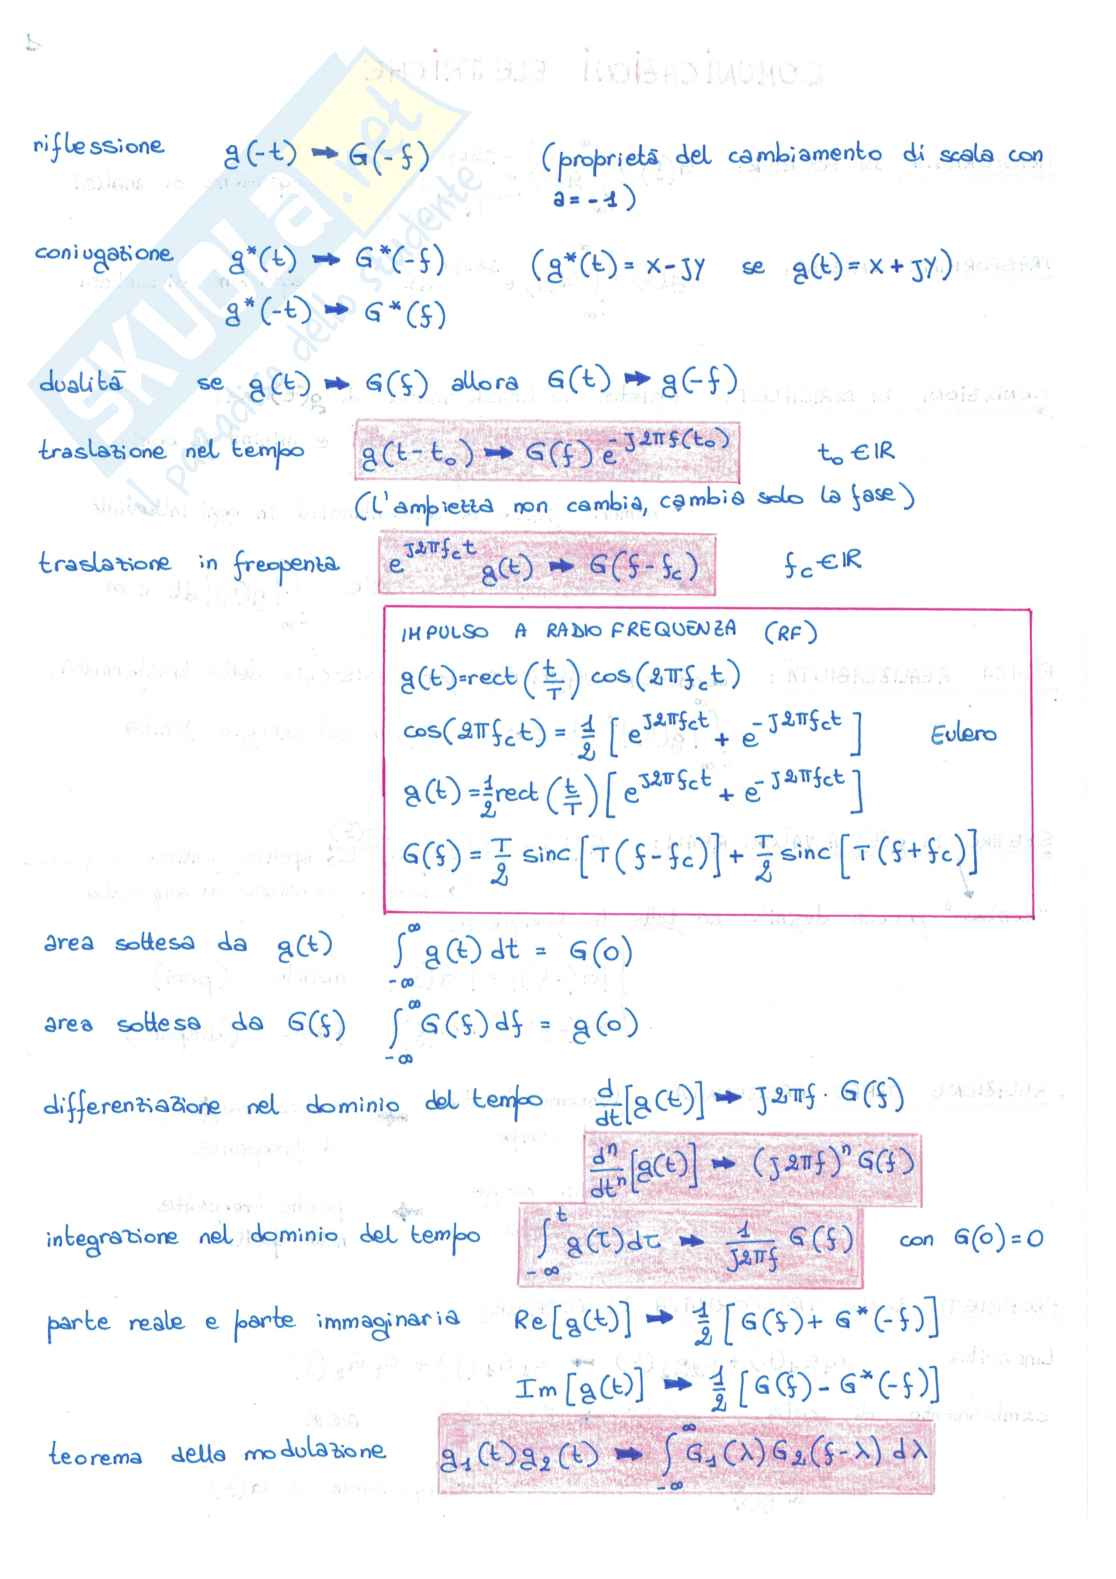 riflessione g(-t) → G(-f) (proprietà del cambiamento di scala con
a = -1)
coniugazione g*(t) → G*(-f) (g*(t) = x - jy se g(t) = x + jy)
g*(-t) → G*(f)
dualità se g(t) → G(f) allora G(t) → g(-f)
traslazione nel tempo g(t-t₀) → G(f) e^{-j2πf(t₀)} t₀ ∈ IR
(l'ampiezza non cambia, cambia solo la fase)
traslazione in frequenza e^{j2πf_c t} g(t) → G(f-f_c) f_c ∈ IR
IMPULSO A RADIOFREQUENZA (RF)
g(t) = rect(t/T) cos(2πf_c t)
cos(2πf_c t) = 1/2 [e^{j2πf_c t} + e^{-j2πf_c t}] Eulero
g(t) = 1/2 rect(t/T) [e^{j2πf_c t} + e^{-j2πf_c t}]
G(f) = T/2 sinc[T(f-f_c)] + T/2 sinc[T(f+f_c)]
area sottesa da g(t) ∫_{-∞}^{∞} g(t) dt = G(0)
area sottesa da G(f) ∫_{-∞}^{∞} G(f) df = g(0)
differenziazione nel dominio del tempo d/dt [g(t)] → j2πf · G(f)
dⁿ/dtⁿ [g(t)] → (j2πf)ⁿ G(f)
integrazione nel dominio del tempo ∫_{-∞}^{t} g(τ)dτ → 1/(j2πf) G(f) con G(0) = 0
parte reale e parte immaginaria Re[g(t)] → 1/2 [G(f) + G*(-f)]
Im[g(t)] → 1/2 [G(f) - G*(-f)]
teorema della modulazione g₁(t)g₂(t) → ∫_{-∞}^{∞} G₁(λ)G₂(f-λ) dλ
SKUOLA.net
il paradiso dello studente